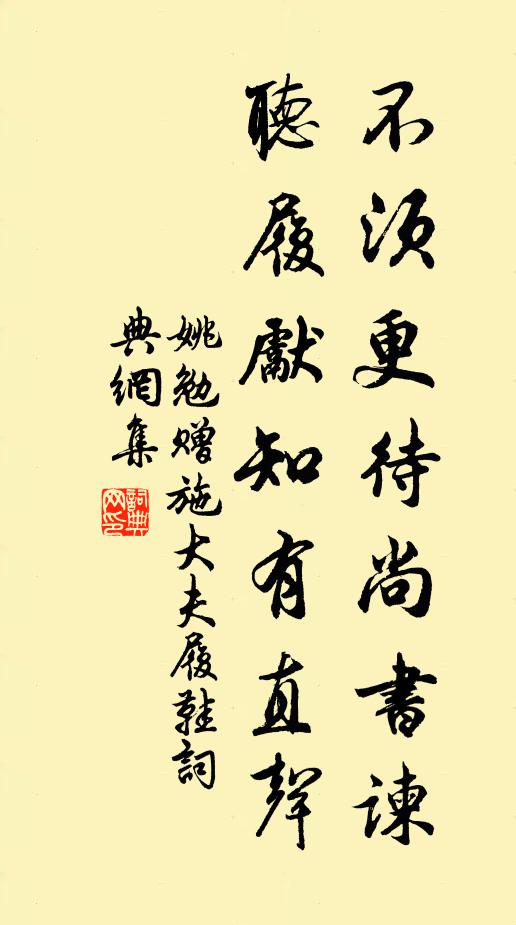 不須更待尚書諫
聽履獻知有直聲
姚勉贈施大夫履鞋詞
典網集
詞典網印